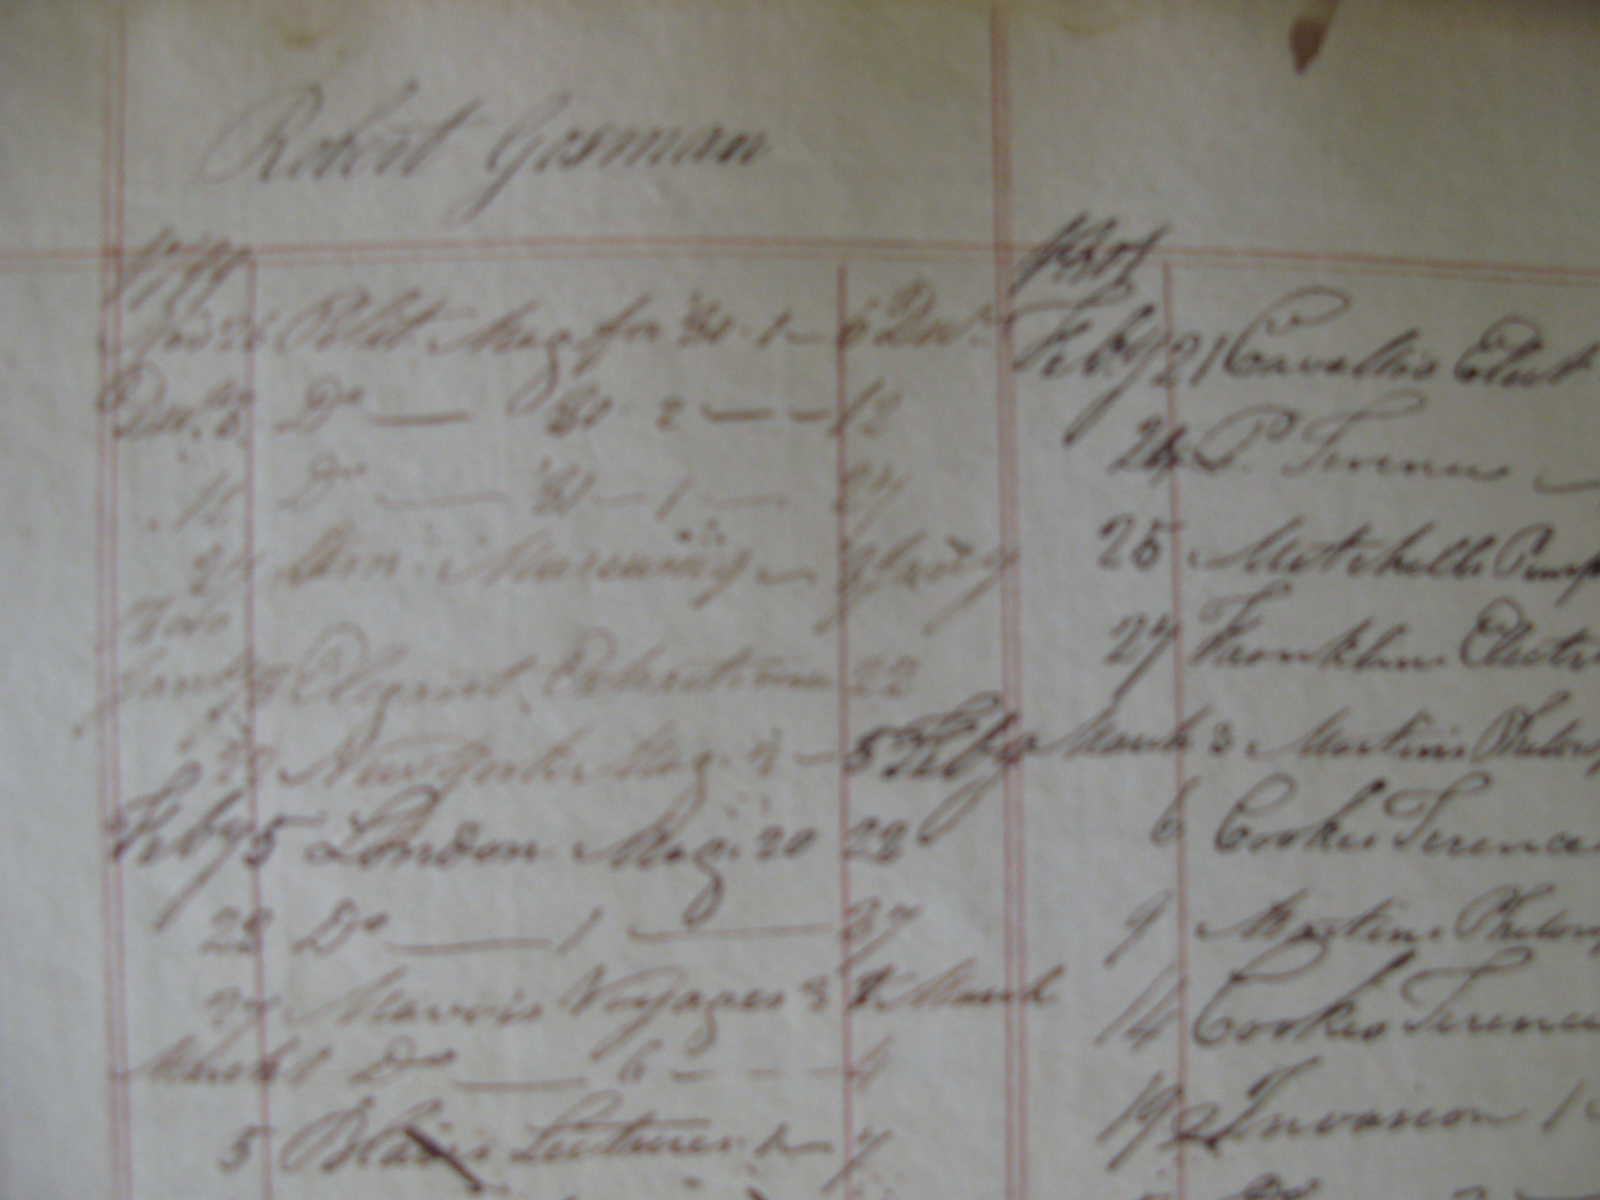 Robert Gosman
1799
26 Polit. Mag for '80 - 1 — 6 Decr
Decr 6 Do — '80 - 2 — — 12
12 Do — '81 — 1 — 27
27 Am. Museum 9 — 9 Jany
1800
Jany 9 Elegant Extracts 22
23 New York Mag. 4 — 5 Feby
Feby 5 London Mag. 20 22
22 Do — 1 — 27
27 Mavors Voyages 3 1 March
March 1 Do — 6 — — 4
5 Blairs Lectures 1 — 7
1801
Feby 21 Cavallis Elect
24 P. Terence —
25 Mitchells
27 Franklins Electri
March 3 Martins Philosop
6 Cookes Terence
9 Martins Philosop
14 Cookes Terence
19 Invasion 1